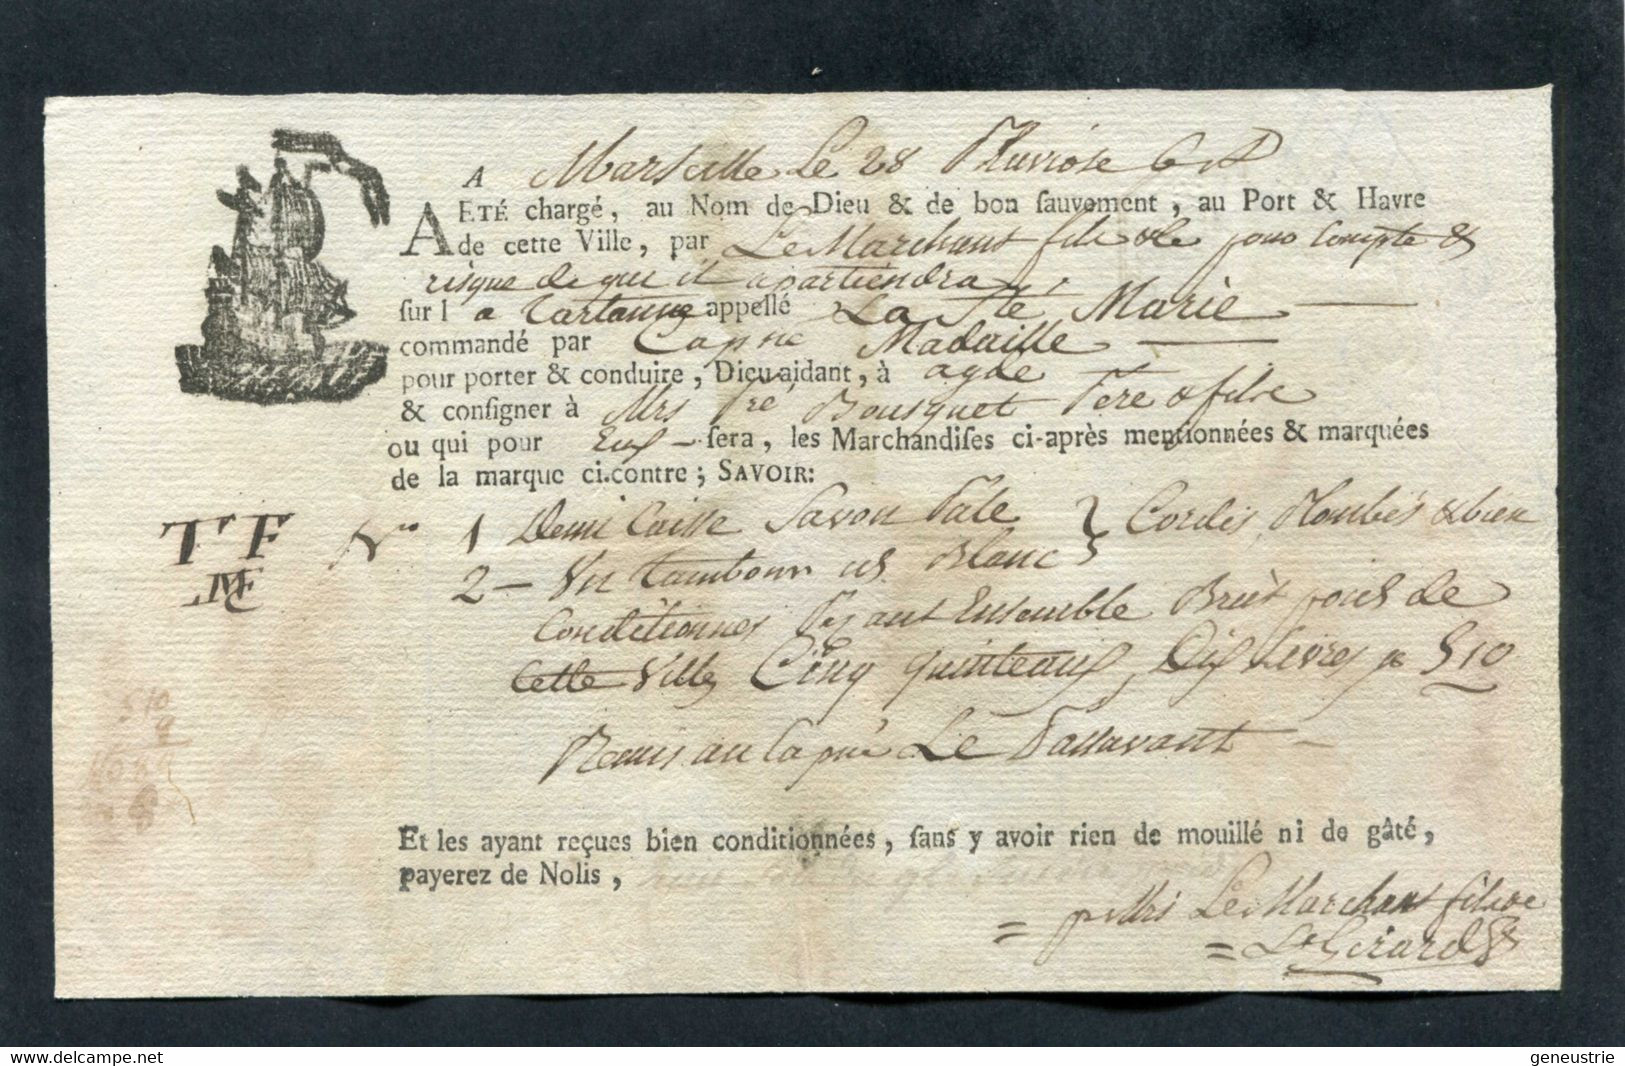 A Marseille Le 28 Pluviose 6
A ETÉ chargé, au Nom de Dieu & de bon ſauvement, au Port & Havre
de cette Ville, par Le Marchant fils &Cie pour Compte &
risque de qui il apartiendra,
ſur l a Tartanne appellé La Ste Marie
commandé par Capne Madaille
pour porter & conduire, Dieu aidant, à agde
& conſigner à Mrs Fré Bousquet Pere & fils
ou qui pour Eux ſera, les Marchandiſes ci-après mentionnées & marquées
de la marque ci.contre; SAVOIR:
TF No 1 Demi Caisse Savon Pale } Cordés Plombés & bien
2 - Un tambour Blanc
Conditionnés Pesant Ensemble Brut poids de
Cette Ville Cinq quinteaux, Dix Livres 510
Remis au Capne Le Passavant
510
Et les ayant reçues bien conditionnées, ſans y avoir rien de mouillé ni de gâté,
payerez de Nolis,
= p Mrs Le Marchant fils &Ce
= Ls Girard
geneustrie